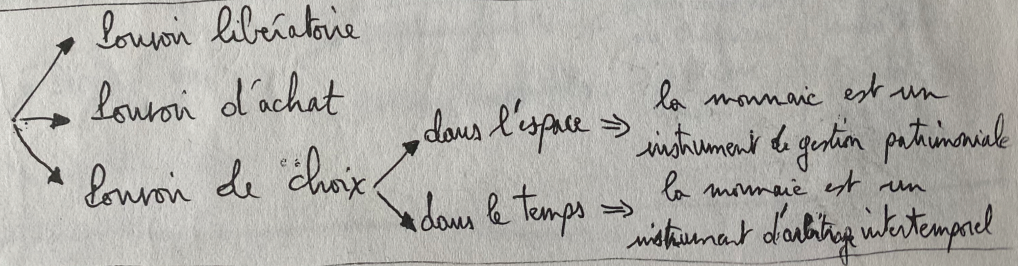 Pouvoir libératoire
Pouvoir d'achat
Pouvoir de choix
dans l'espace ⇒ la monnaie est un
instrument de gestion patrimoniale
dans le temps ⇒ la monnaie est un
instrument d'arbitrage intertemporel